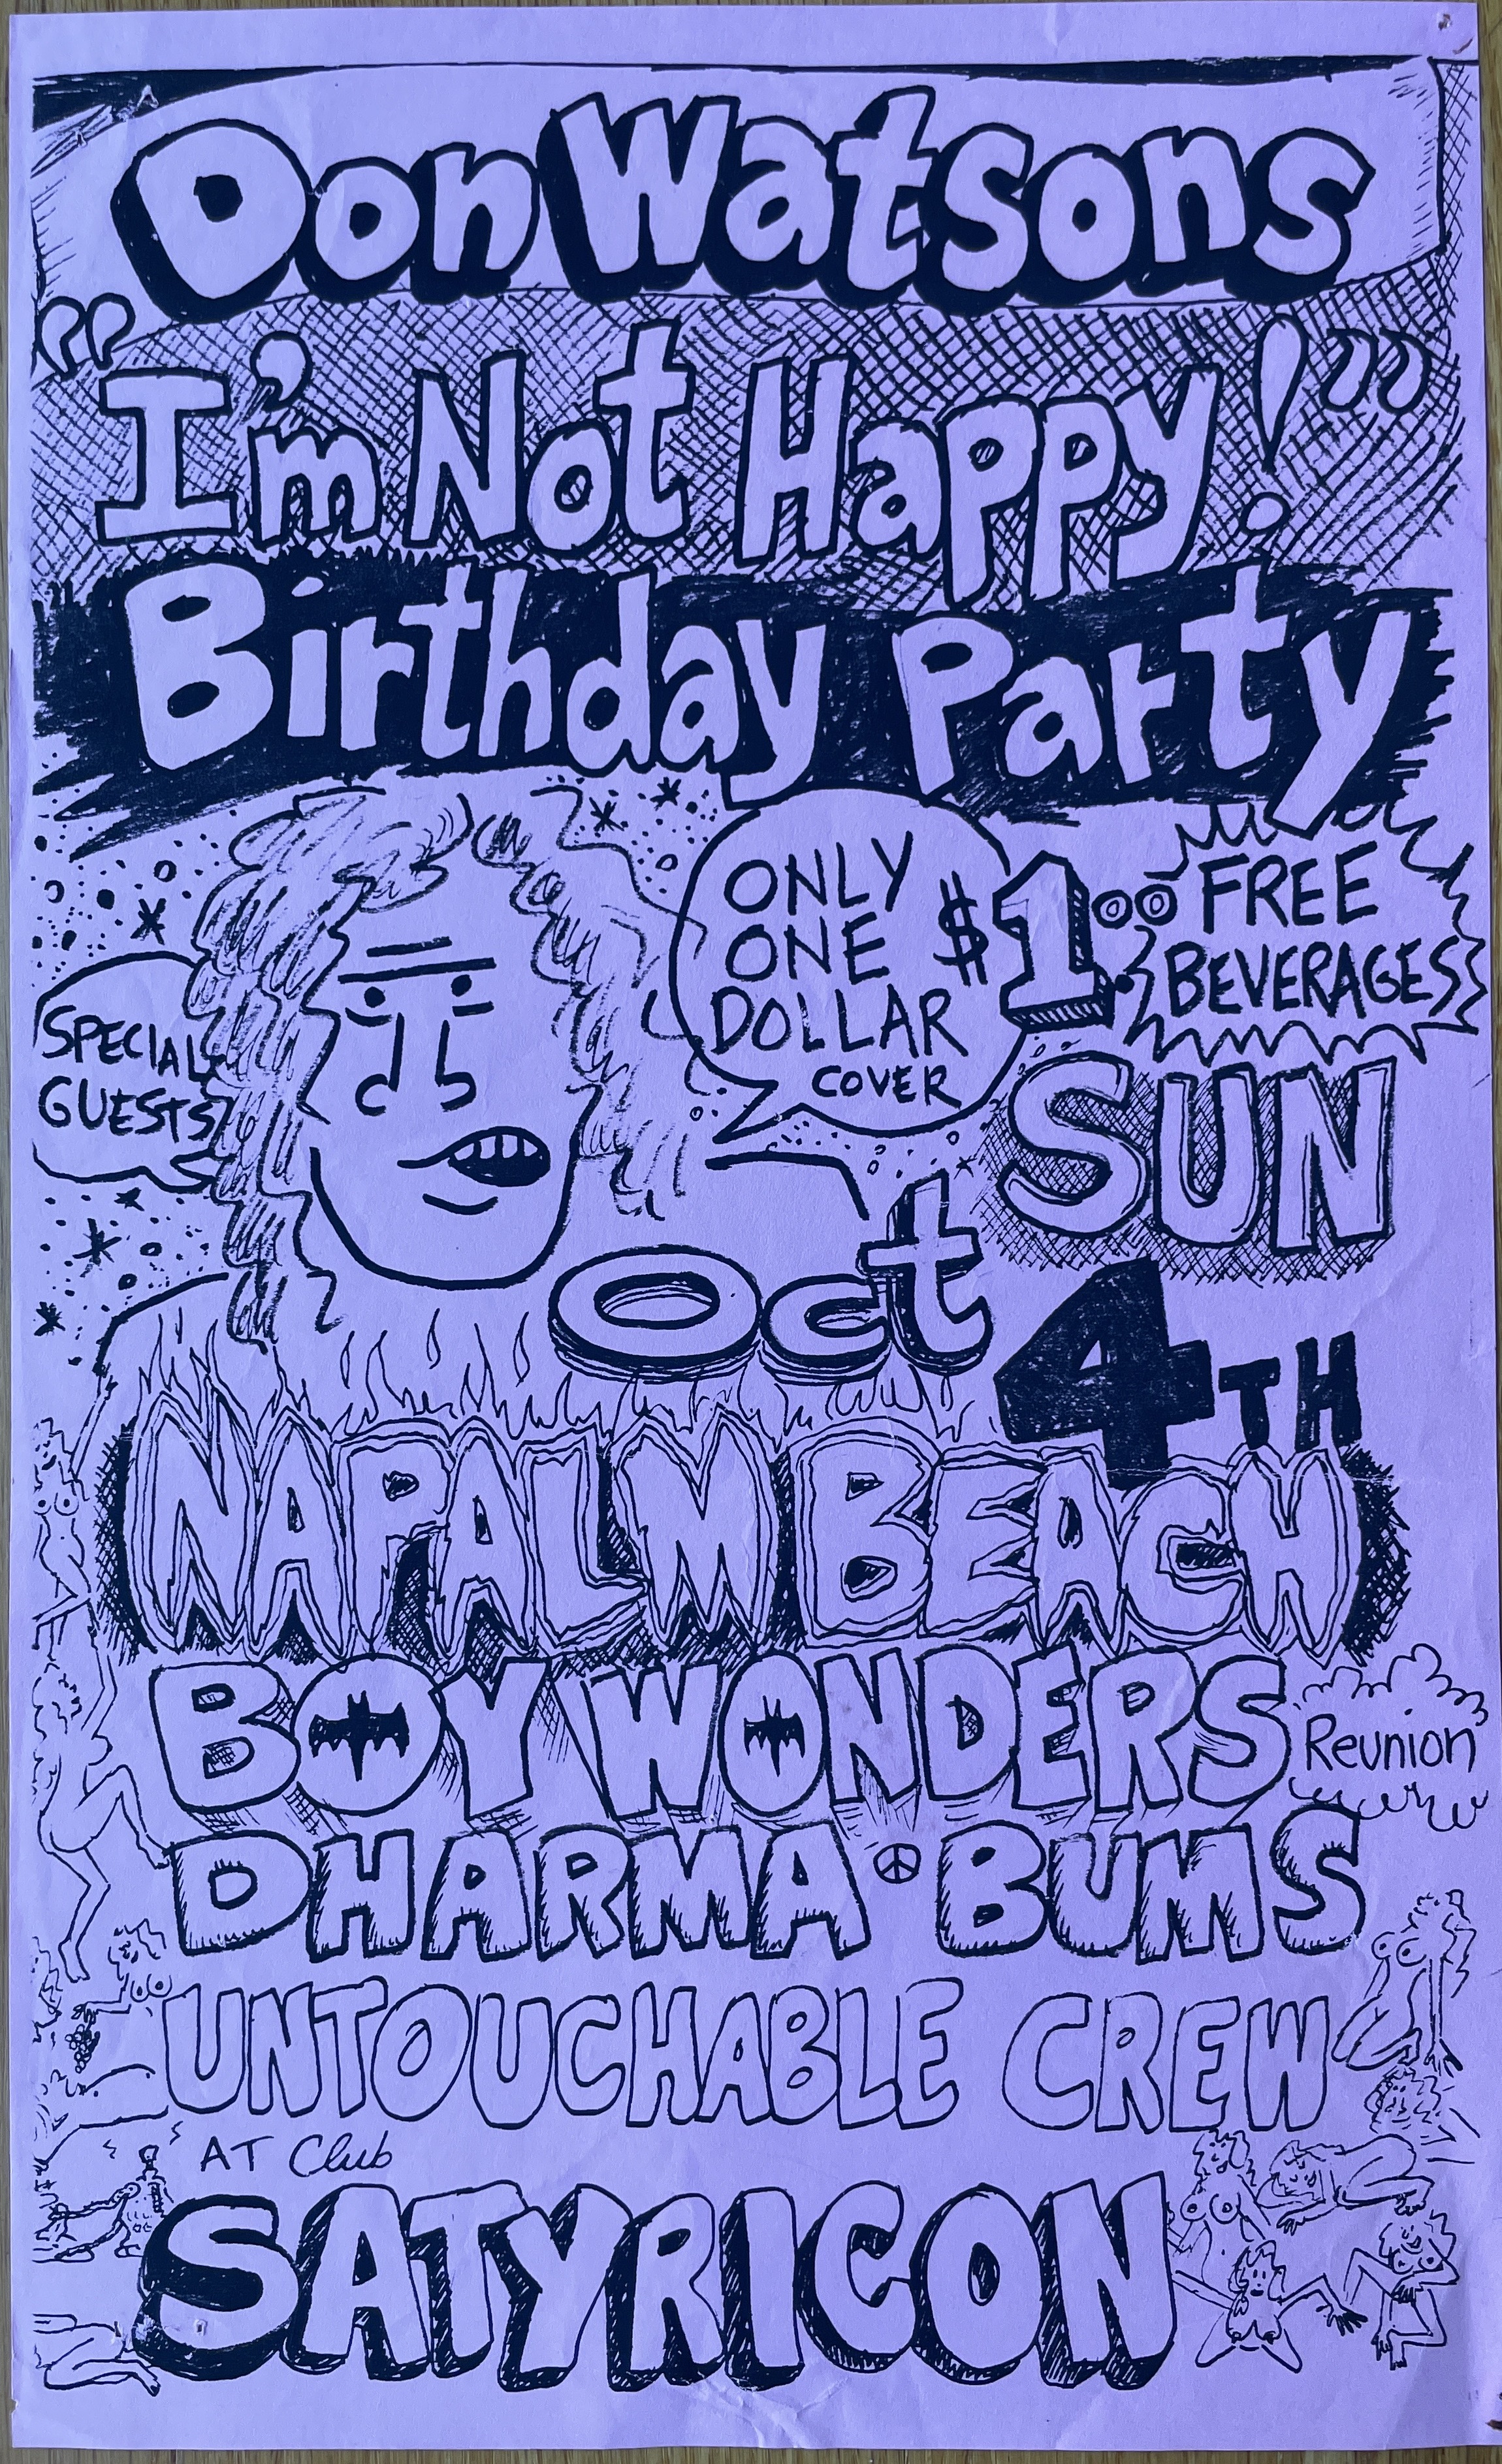 Don Watsons
"I'm Not Happy!"
Birthday Party
SPECIAL
GUESTS
ONLY
ONE
DOLLAR
COVER
$1.00
FREE
BEVERAGES
SUN
Oct
4TH
NAPALM BEACH
BOY WONDERS
Reunion
DHARMA BUMS
UNTOUCHABLE CREW
AT Club
SATYRICON